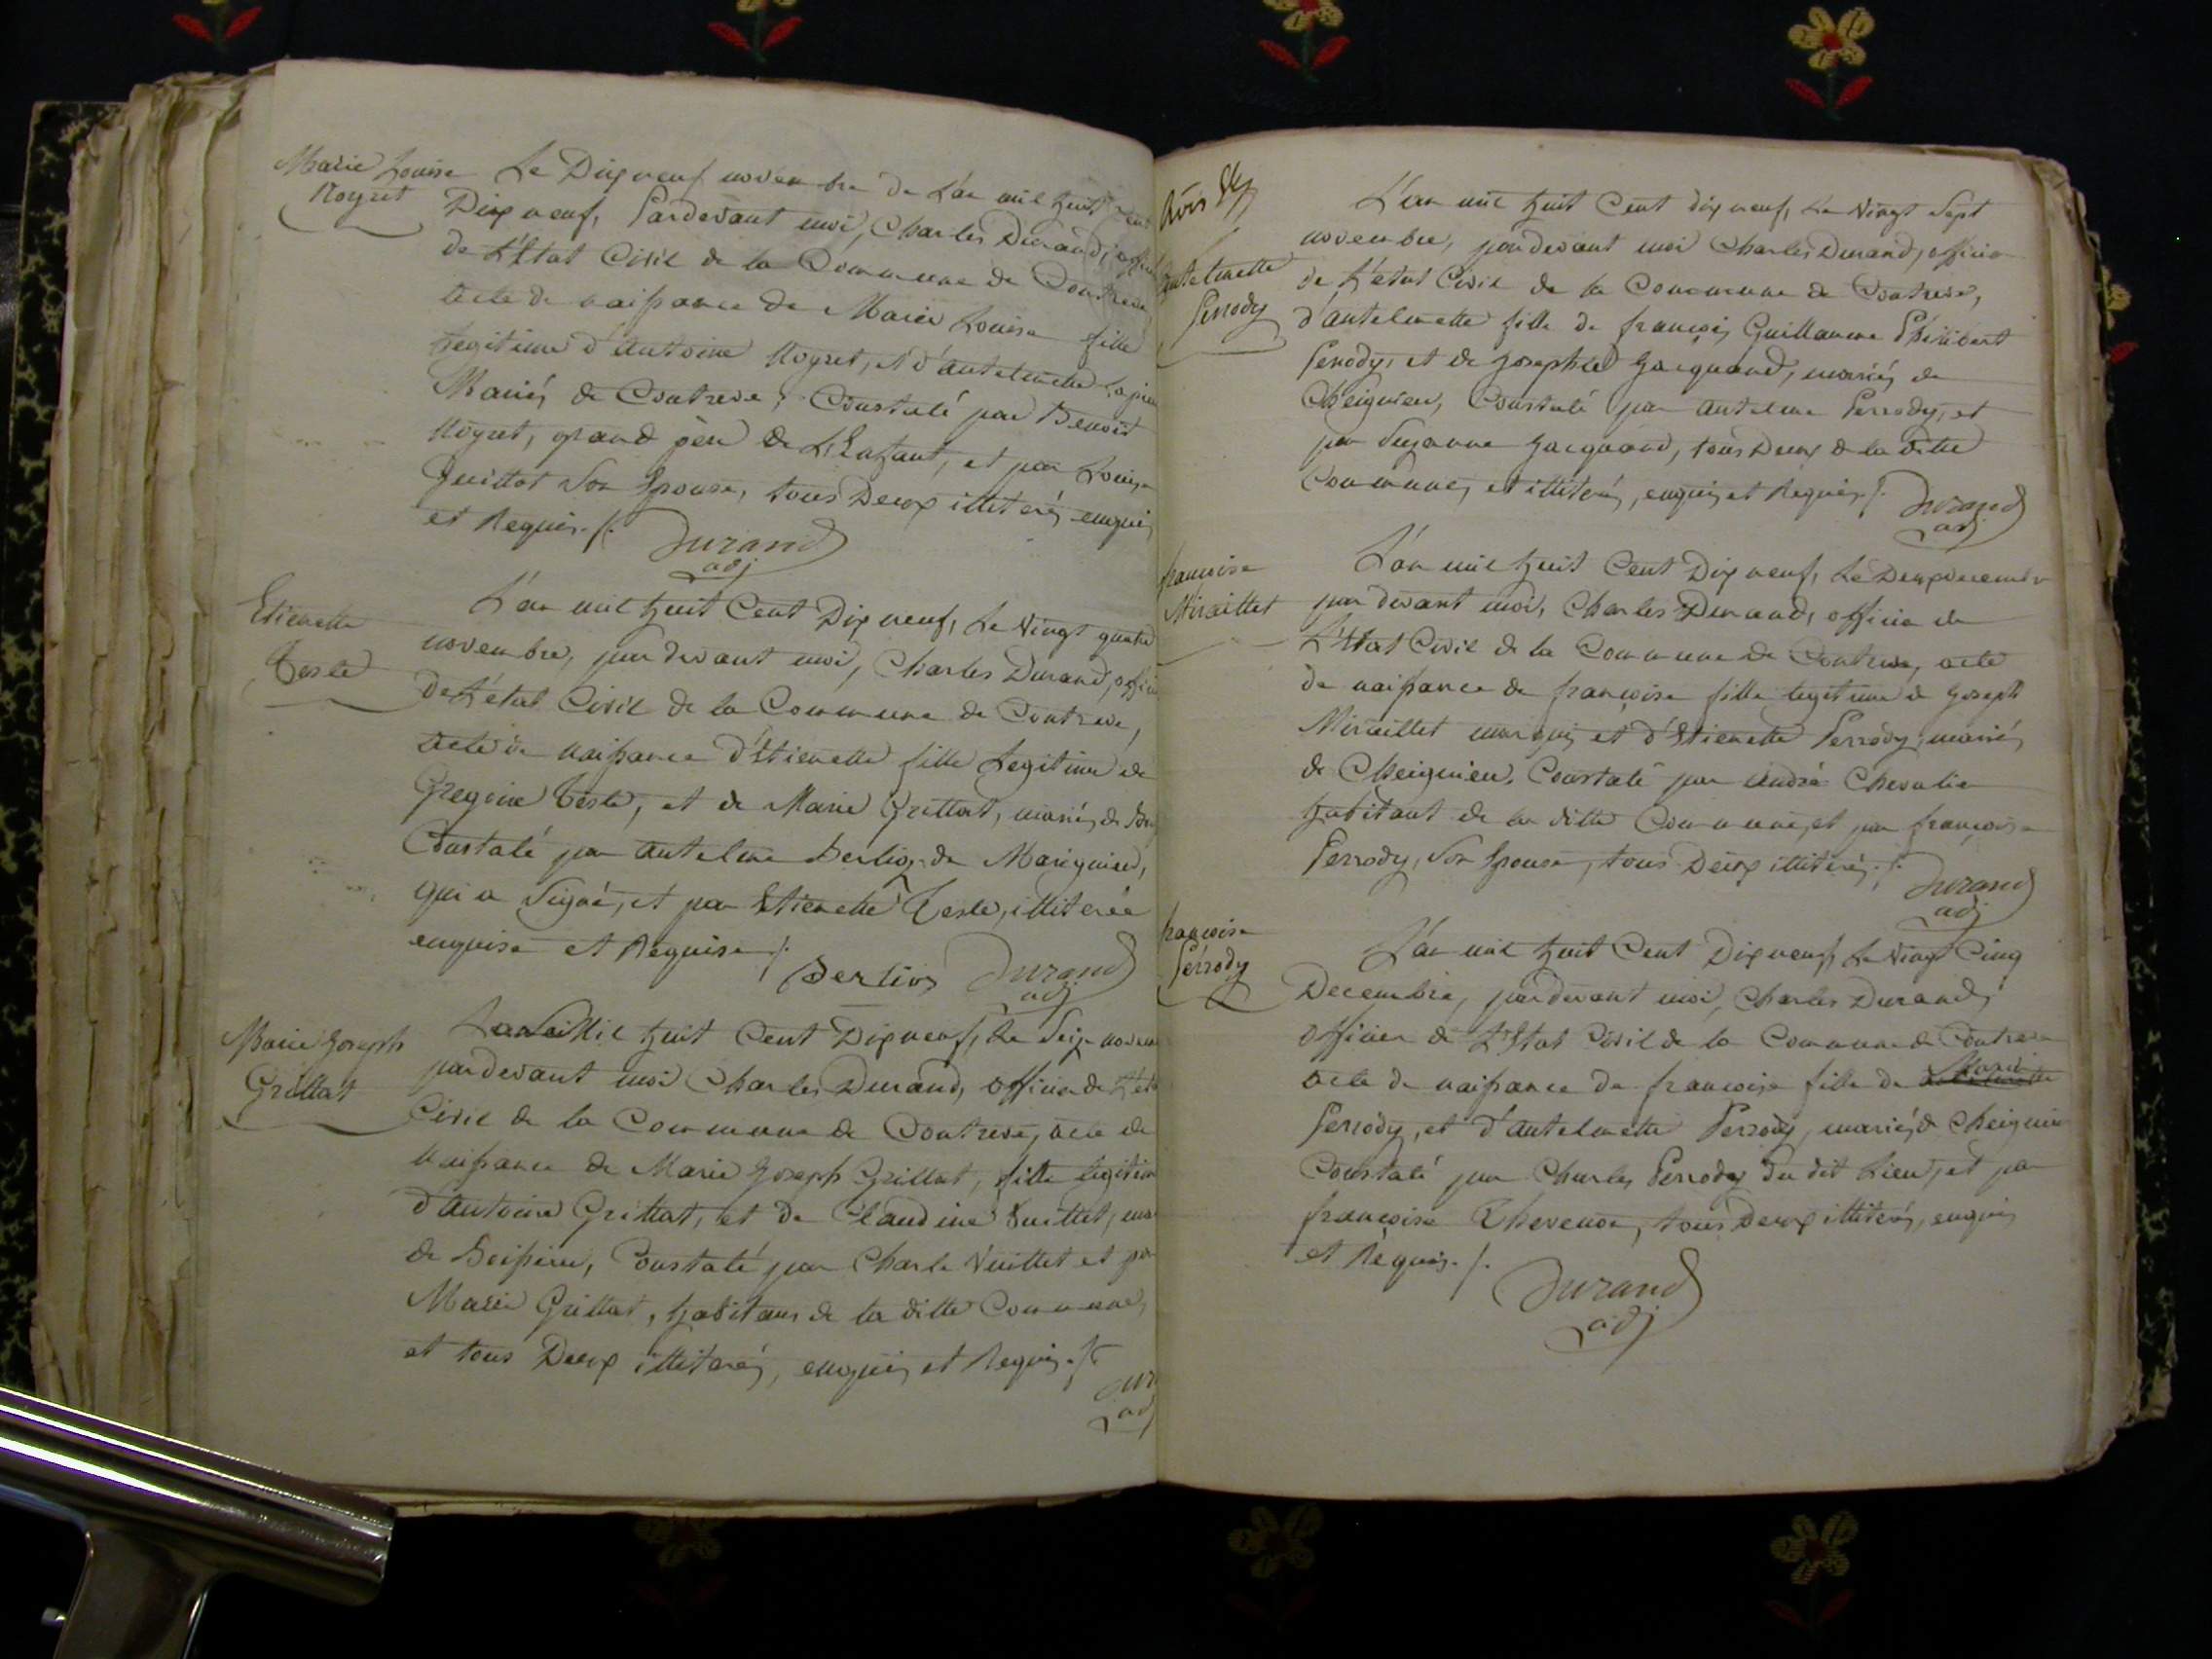 Marie Louise
Noyret
Le Dix neuf novembre de L'an mil huit cent
Dix neuf, Pardevant moi, Charles Durand, offici
de L'Etat Civil de la Commune de Contrevoz
acte de naissance de Marie Louise fille
Legitime d'Antoine Noyret, et d'antelmette
Mariés de Contrevoz, Constaté par Benoit
Noyret, grand père de L'Enfant, et par Louise
Guillot Son Epouse, tous Deux illiterés enquis
et Requis ./.
Durand
adj
Etienette
Teste
L'an mil huit Cent Dix neuf, Le Vingt quatre
novembre, par devant moi, Charles Durand, offici
de L'état Civil de la Commune de Contrevoz,
acte de naissance d'Etienette fille Legitime de
Gregoire Teste, et de Marie Grillat, mariés de
Constaté par antelme Berlioz de Marignieu,
qui a Signé, et par Etienette Teste, illiterée
enquise et Requise ./.
Berlioz Durand
adj
Marie Joseph
Grillat
L'an Mil huit Cent Dix neuf, Le Seize novem
pardevant moi Charles Durand, officier de L'état
Civil de la Commune de Contrevoz, acte de
naissance de Marie Joseph Grillat, fille legitim
d'Antoine Grillat, et de Claudine Vuillet, ma
de Boissieu, Constaté par Charle Vuillet et par
Marie Grillat, habitans de la ditte Commune,
et tous Deux illiterés, enquis et Requis ./.
Dur
adj
antelmette
Perrody
L'an mil huit Cent dix neuf, Le Vingt Sept
novembre, pardevant moi Charles Durand, officier
de L'état Civil de la Commune de Contrevoz,
d'antelmette fille de françois Guillaume Philibert
Perrody, et de Josephte Jacquand, mariés de
Cheignieu, Constaté par antelme Perrody, et
par Suzanne Jacquand, tous Deux de la ditte
Commune, et illiterés, enquis et Requis ./.
Durand
adj
françoise
Miraillet
L'an mil huit Cent Dix neuf, Le Deux decembre
par devant moi, Charles Durand, officier de
L'Etat Civil de la Commune de Contrevoz, acte
de naissance de françoise fille legitime de Joseph
Miraillet et d'Etienette Perrody, mariés
de Cheignieu, Constaté par André Chevalier
habitant de la ditte Commune, et par françoise
Perrody, Son Epouse, tous Deux illiterés ./.
Durand
adj
françoise
Perrody
L'an mil huit Cent Dix neuf, Le Vingt Cinq
Decembre, pardevant moi, Charles Durand,
officier de L'Etat Civil de la Commune de Contrevoz
acte de naissance de françoise fille de
Perrody, et d'antelmette Perrody, mariés de Cheignieu
Constaté par Charles Perrody du dit Lieu, et par
françoise Thevenon, tous Deux illiterés, enquis
et Requis ./.
Durand
adj